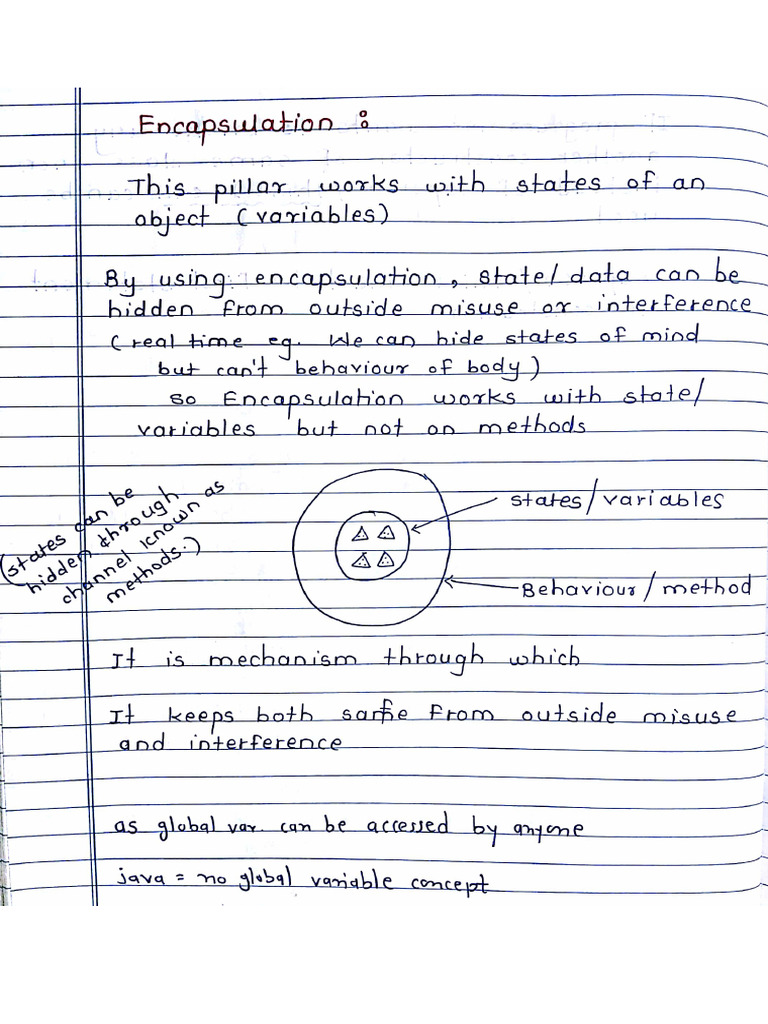 Encapsulation :
This pillar works with states of an
object (variables)
By using encapsulation, state/data can be
hidden from outside misuse or interference
(real time eg. We can hide states of mind
but can't behaviour of body)
so Encapsulation works with state/
variables but not on methods
(states can be
hidden through
channel known as
methods.)
states/variables
Behaviour/method
It is mechanism through which
It keeps both safe from outside misuse
and interference
as global var. can be accessed by anyone
java = no global variable concept